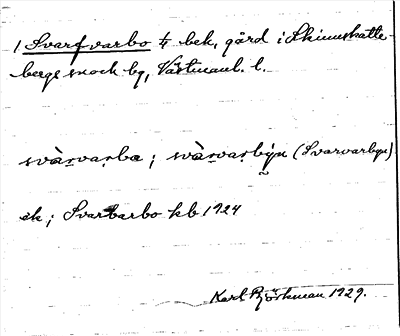 1 Svarfvarbo ¼ bek, gård i Skinnskatte-
bergs sock bg, Västmanl. l.
svàrvarba ; svàrvarbýn (Svarvarbyn)
ek ; Svartarbo kb 1924
Karl Björkman 1929.